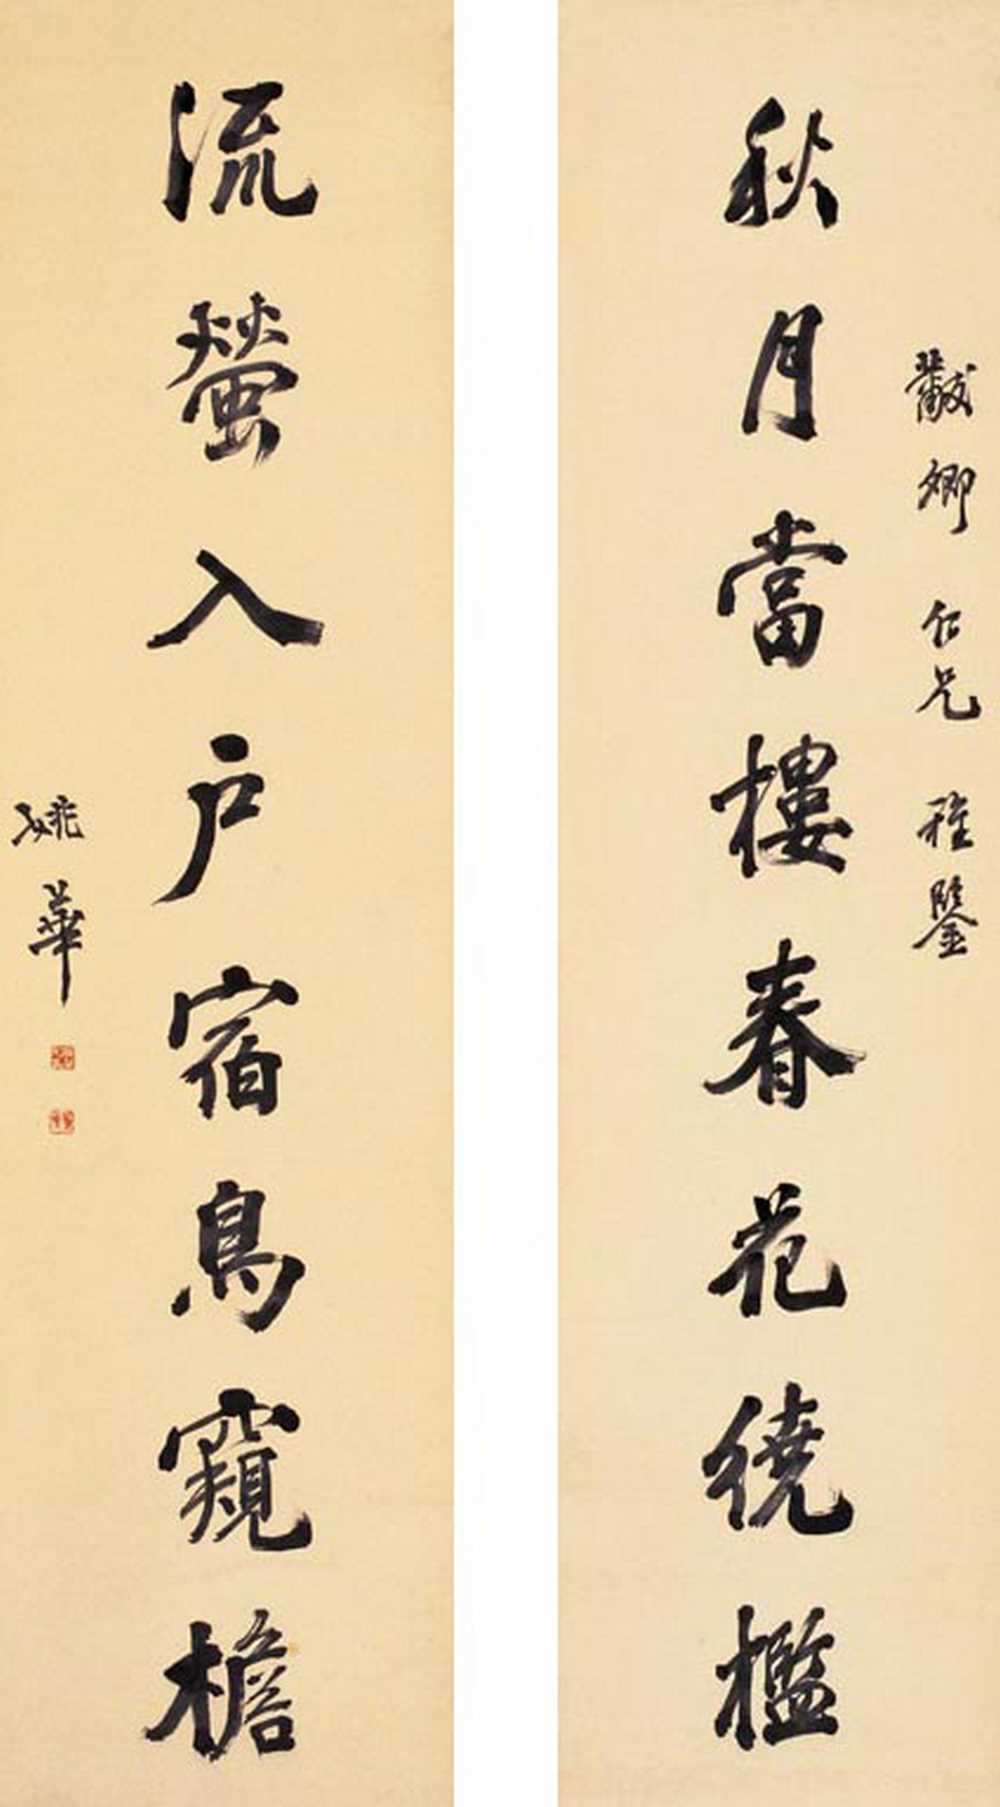 黻卿仁兄雅鑒
秋月當樓春花繞檻
流螢入户宿鳥窺檐
姚華